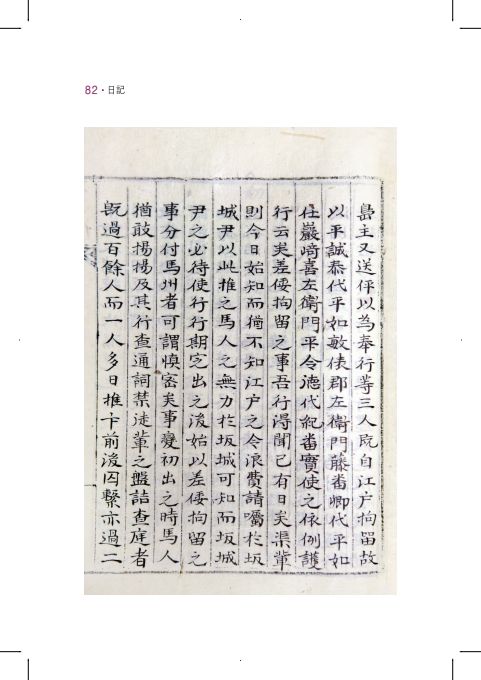 82 · 日記
島主又送伻以為奉行等三人旣自江户拘留故
以平誠泰代平如敏俵郡左衛門藤番卿代平如
任巖﨑喜左衛門平令德代紀畨實使之依例護
行云矣差倭拘留之事吾行淂聞已有日矣渠輩
則今日始知而猶不知江户之令浪費請囑扵坂
城尹以此推之馬人之無力扵坂城可知而坂城
尹之必待使行行期㝎出之後始以差倭拘留之
事分付馬州者可謂慎宻矣事變初出之時馬人
猶敢揚揚及其行查通詞禁徒輩之盤詰查庭者
旣過百餘人而一人多日推卞前後囚繫亦過二